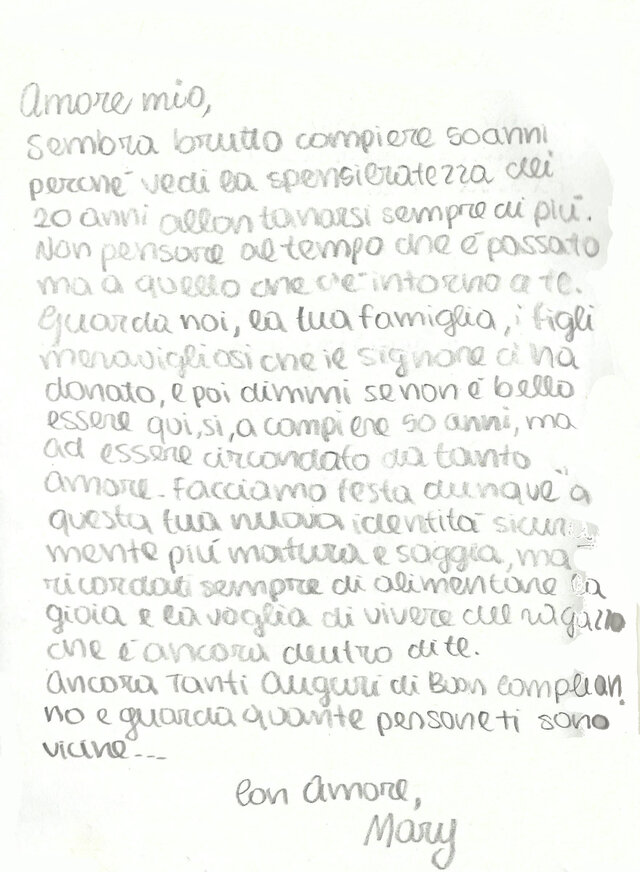 Amore mio,
sembra brutto compiere 50 anni
perché vedi la spensieratezza dei
20 anni allontanarsi sempre di più.
Non pensare al tempo che è passato
ma a quello che c'è intorno a te.
Guarda noi, la tua famiglia, i figli
meravigliosi che il signore ci ha
donato, e poi dimmi se non è bello
essere qui, si, a compiere 50 anni, ma
ad essere circondato da tanto
amore. Facciamo festa dunque a
questa tua nuova identità sicura
mente più matura e saggia, ma
ricordati sempre di alimentare la
gioia e la voglia di vivere del ragazzo
che è ancora dentro di te.
Ancora Tanti Auguri di Buon complean
no e guarda quante persone ti sono
vicine...
Con Amore,
Mary